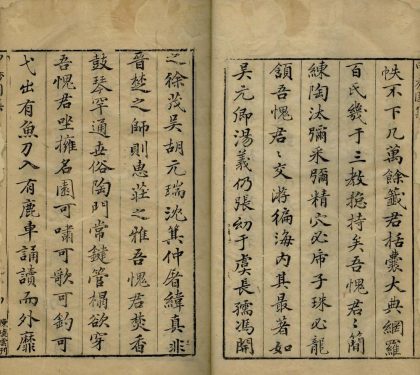 帙不下几萬餘籤君括囊大典網羅
百氏幾于三教揔持矣吾愧君〻簡
練陶汰彌采彌精穴必帝子珠必龍
頷吾愧君〻交游徧海內其最著如
吳元卿湯義仍張幼于虞長孺馮開
之徐茂吳胡元瑞沈箕仲屠緯真非
晉楚之師則惠莊之雅吾愧君焚香
鼓琴罕通世俗陶門常鍵管榻欲穿
吾愧君坐擁名園可嘯可歌可釣可
弋出有魚刀入有鹿車誦讀而外靡